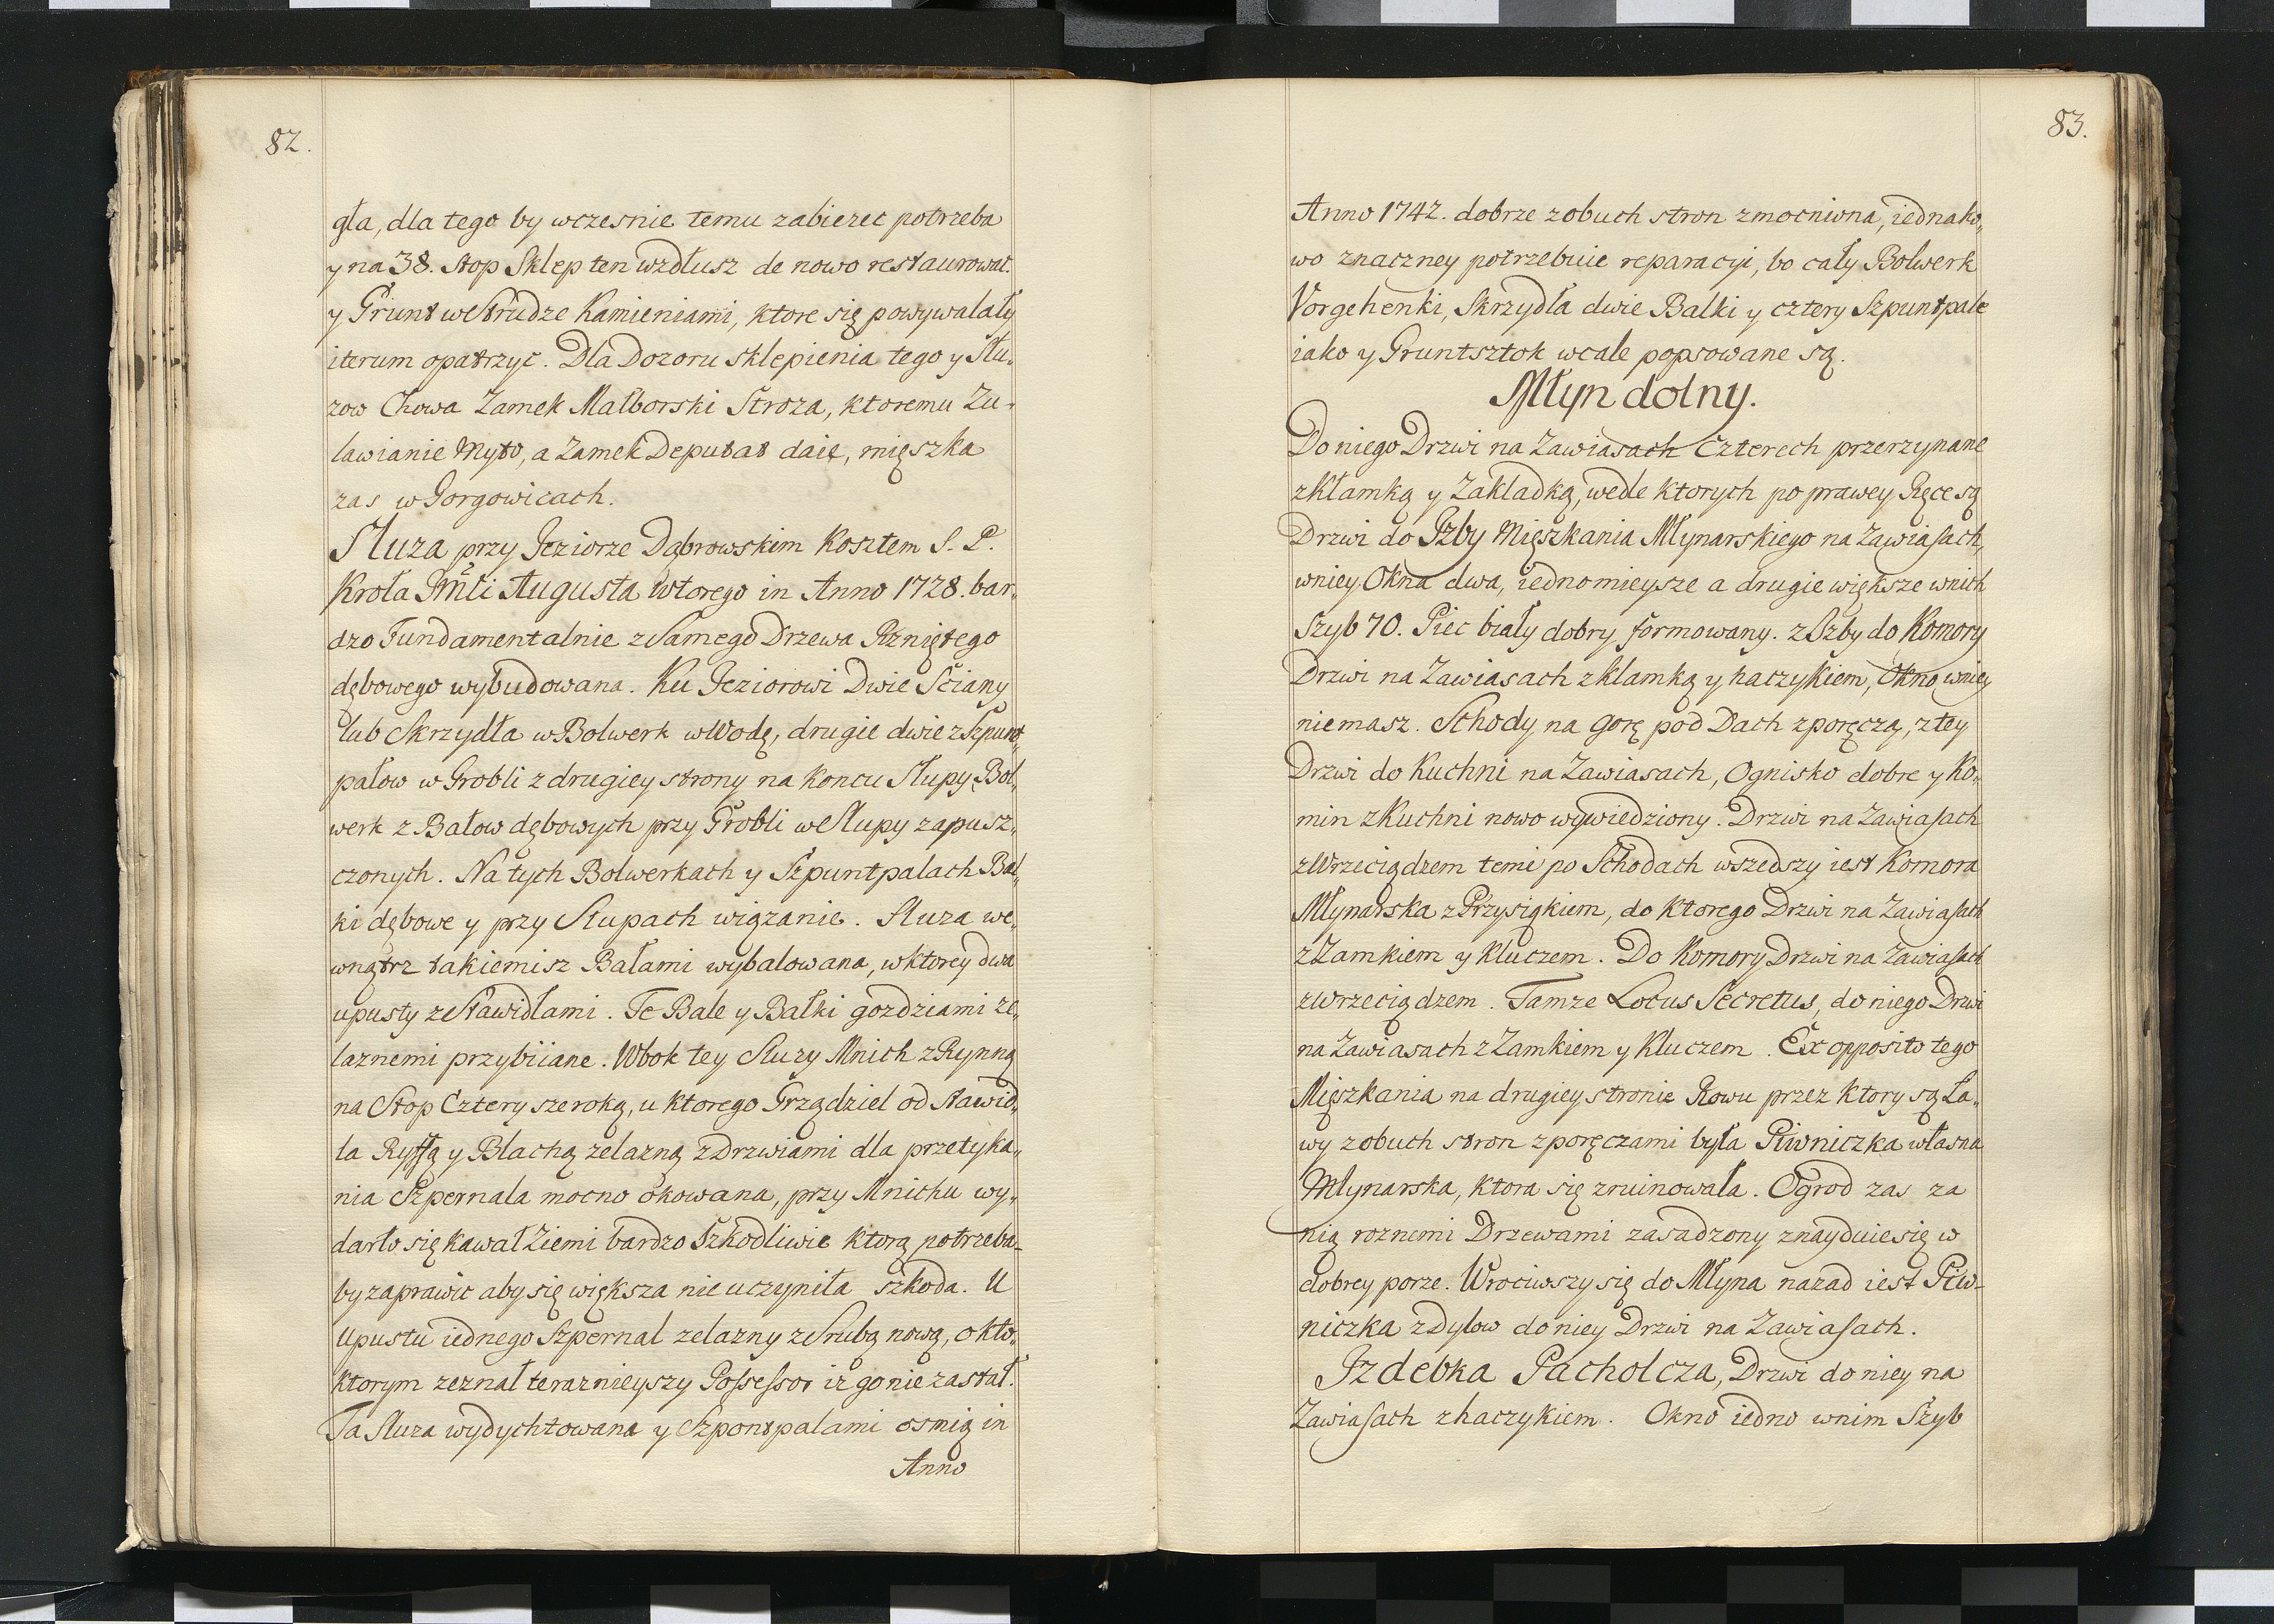 82.
gła, dla tego by wczesnie temu zabierec potrzeba
y na 38. stop Sklep ten wzdłusz de novo restaurowac.
y Grunt w Strudze Kamieniami, ktore się powywalały
iterum opatrzyc. Dla Dozoru sklepienia tego y Słu„
zow Chowa Zamek Malborski Stroza, ktoremu Zu„
lawianie Myto, a Zamek Deputat daie, mięszka
zas w Gorgowicach.
Sluza przy Jeziorze Dąbrowskim Kosztem S. P.
Krola Jmči Augusta wtorego in Anno 1728. bar„
dzo Fundamentalnie z Samego Drzewa Rzniętego
dębowego wybudowana. Ku Jeziorowi Dwie Sciany
lub Skrzydła w Bolwerk w Wodę, drugie dwie z Szpunt„
palow w Grobli z drugiey strony na koncu Słupy, Bol„
werk z Balow dębowych przy Grobli w Slupy zapusz„
czonych. Na tych Bolwerkach y Szpuntpalach Bal„
ki dębowe y przy Slupach wiązanie. Sluza we„
wnątrz takiemisz Balami wybalowana, w ktorey dwa
upusty z Stawidlami. Te Bale y Balki gozdziami ze„
laznemi przybiiane. Wbok tey Sluzy Mnich z Rynną
na Stop Cztery szeroką, u ktorego Grządziel od stawid„
la Ryffą y Blachą zelazną z Drzwiami dla przetyka„
nia Szpernala mocno okowana, przy Mnichu wy„
darło się kawał Ziemi bardzo szkodliwie ktorą potrzeba„
by zaprawic aby się większa nie uczyniła szkoda. U
Upustu iednego Szpernal zelazny z Srubą nową, o kto„
ktorym zeznał teraznieyszy Possessor iz go nie zastał.
Ta Sluza wydychtowana y Szpontpalami osmią in
Anno
83.
Anno 1742. dobrze z obuch stron zmocniona, iednako„
wo znaczney potrzebuie reparacyi, bo cały Bolwerk
Vorgehenki, Skrzydła dwie Balki y cztery Szpuntpale
iako y Gruntsztok wcale popsowane są.
Młyn dolny.
Do niego Drzwi na Zawiasach Czterech przerzynane
z Klamką y Zakladką, wedle ktorych po prawey Ręce są
Drzwi do Jzby Mięszkania Młynarskiego na Zawiasach,
w niey Okna dwa, iedno mieysze a drugie większe w nich
Szyb 70. Piec biały dobry formowany. z Jzby do Komory
Drzwi na Zawiasach z klamką y haczykiem, Okno w niey
niemasz. Schody na gorę pod Dach z poręczą, z tey
Drzwi do Kuchni na Zawiasach, Ognisko dobre y Ko„
min z Kuchni nowo wywiedziony. Drzwi na Zawiasach
z Wrzeciądzem temi po Schodach wszedszy iest Komora
Młynarska z Przysiąkiem, do ktorego Drzwi na Zawiasach
z Zamkiem y Kluczem. Do Komory Drzwi na Zawiasach
z Wrzeciądzem. Tamze Locus Secretus, do niego Drzwi
na Zawiasach z Zamkiem y Kluczem. Ex opposito tego
Mięszkania na drugiey stronie Rowu przez ktory są Ła„
wy z obuch stron z poręczami była Piwniczka własna
Młynarska, ktora się zruinowała. Ogrod zas za
nią roznemi Drzewami zasadzony znayduie się w
dobrey porze. Wrociwszy się do Młyna nazad iest Piw„
niczka z Dylow do niey Drzwi na Zawiasach.
Jzdebka Pacholcza, Drzwi do niey na
Zawiasach z haczykiem. Okno iedno w nim Szyb